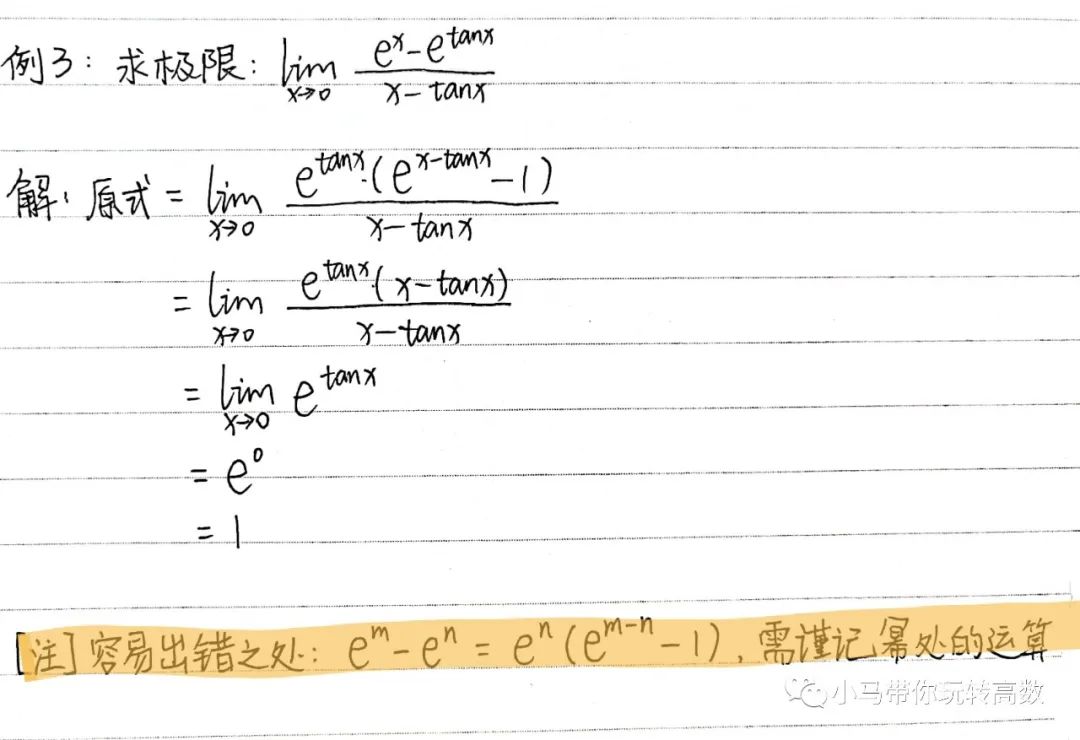 例3: 求极限: lim x→0 (e^x - e^tanx)/(x - tanx)
解: 原式 = lim x→0 (e^tanx·(e^(x-tanx) - 1))/(x - tanx)
= lim x→0 (e^tanx·(x - tanx))/(x - tanx)
= lim x→0 e^tanx
= e^0
= 1
[注] 容易出错之处: e^m - e^n = e^n (e^(m-n) - 1), 需谨记幂处的运算
小马带你玩转高数